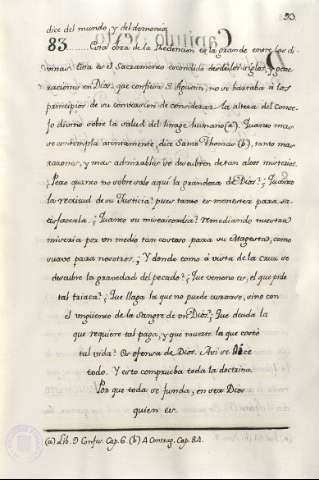 50.
dice del mundo y del demonio
83 ..... Esta obra de la Redencion es la grande entre las di-
vinas. Este es el Sacramento escondido desde los siglos, y gene-
raciones en Dios; que confiesa S. Agustin, no se hartaba à los
principios de su conversion de considerar la alteza del Conse-
jo divino sobre la salud del linage humano (a). Quanto mas
se contempla atentamente, dice Santo Thomas (b), tanto mas
razones, y mas admirables se descubren de tan altos misterios.
¿Pero quanto no sobresale aqui la grandeza de Dios? ¿Quanto
la rectitud de su Justicia? pues tanto es menester para sa-
tisfacerla. ¿Quanto su misericordia? remediando nuestra
miseria por un medio tan costoso para su Magestad, como
suave para nosotros: ¿Y donde como à vista de la cruz se
descubre la gravedad del pecado? ¿Que veneno es, el que pide
tal triaca? ¿Que llaga la que no puede curarse, sino con
el ungüento de la sangre de un Dios? ¿Que deuda la
que requiere tal paga, y que muerte la que costò
tal vida? Es ofensa de Dios. Asi se dice
todo. Y esto comprueba toda la doctrina.
Por que toda se funda, en ser Dios
quien es.
(a) Lib. 9 Confes. Cap. 6. (b) 4 Contrag. Cap. 54.